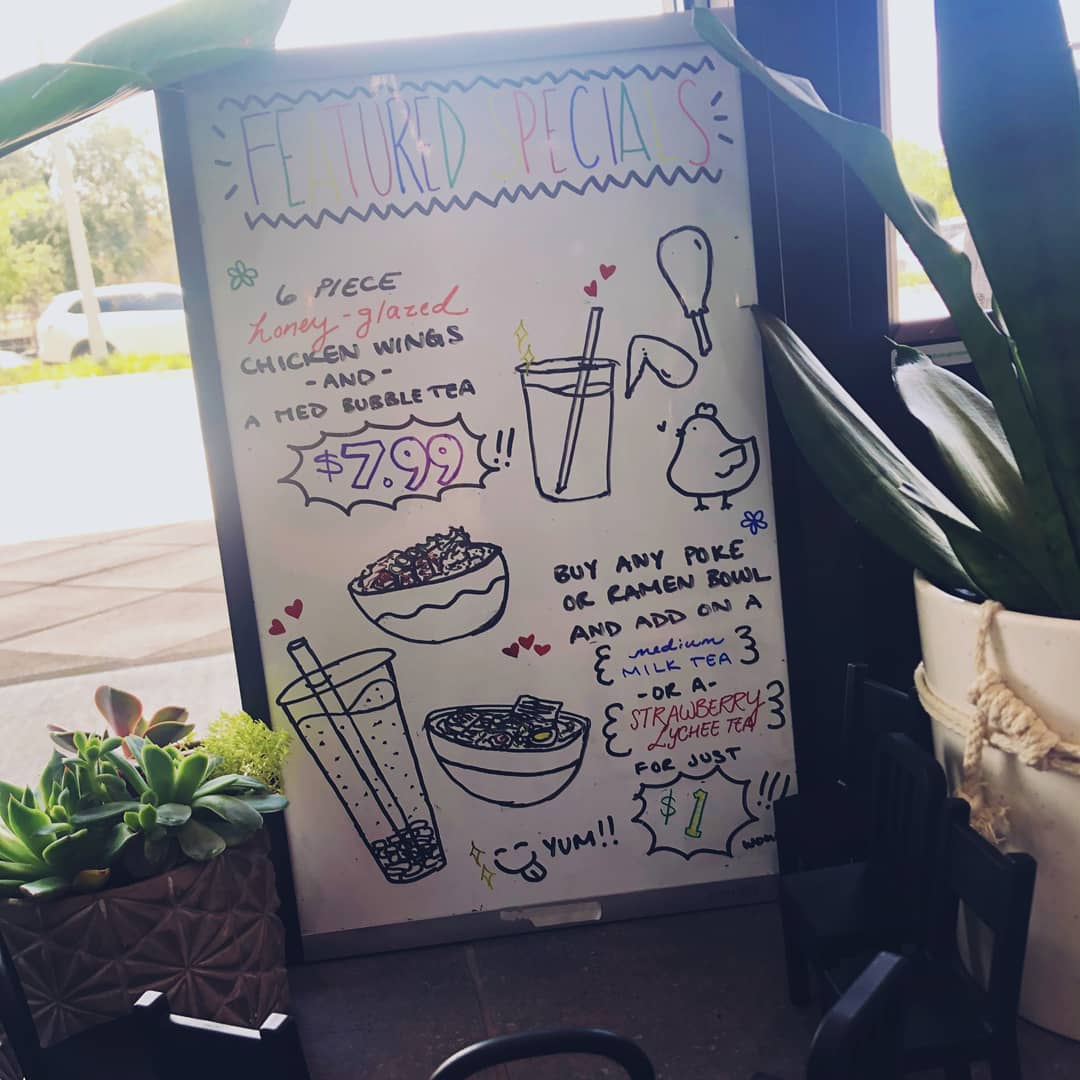 FEATURED SPECIALS
6 PIECE
honey-glazed
CHICKEN WINGS
-AND-
A MED BUBBLE TEA
$7.99!!
BUY ANY POKE
OR RAMEN BOWL
AND ADD ON A
{medium
MILK TEA}
-OR A-
{STRAWBERRY
LYCHEE TEA}
FOR JUST
$1!!!
WOW
YUM!!